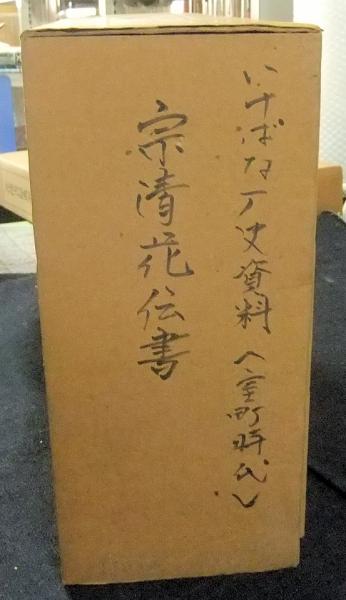 いけばな歴史資料(室町時代)
宗清花伝書